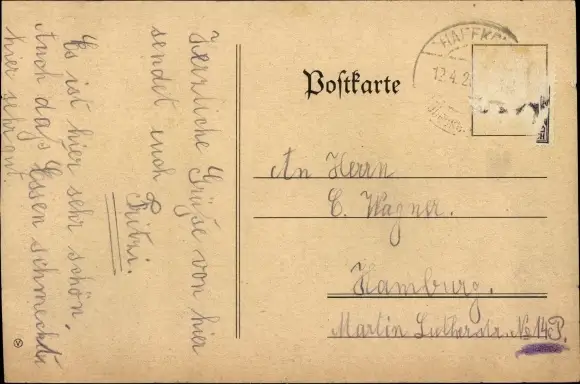 Postkarte
HAFFK
12.4.2
Herzliche Grüße von hier
sendet euch
Fritzi.
Es ist hier sehr schön.
Auch das Essen schmeckt
hier sehr gut.
An Herrn
C. Wagner.
Hamburg.
Martin Lutherstr. No 14 P.